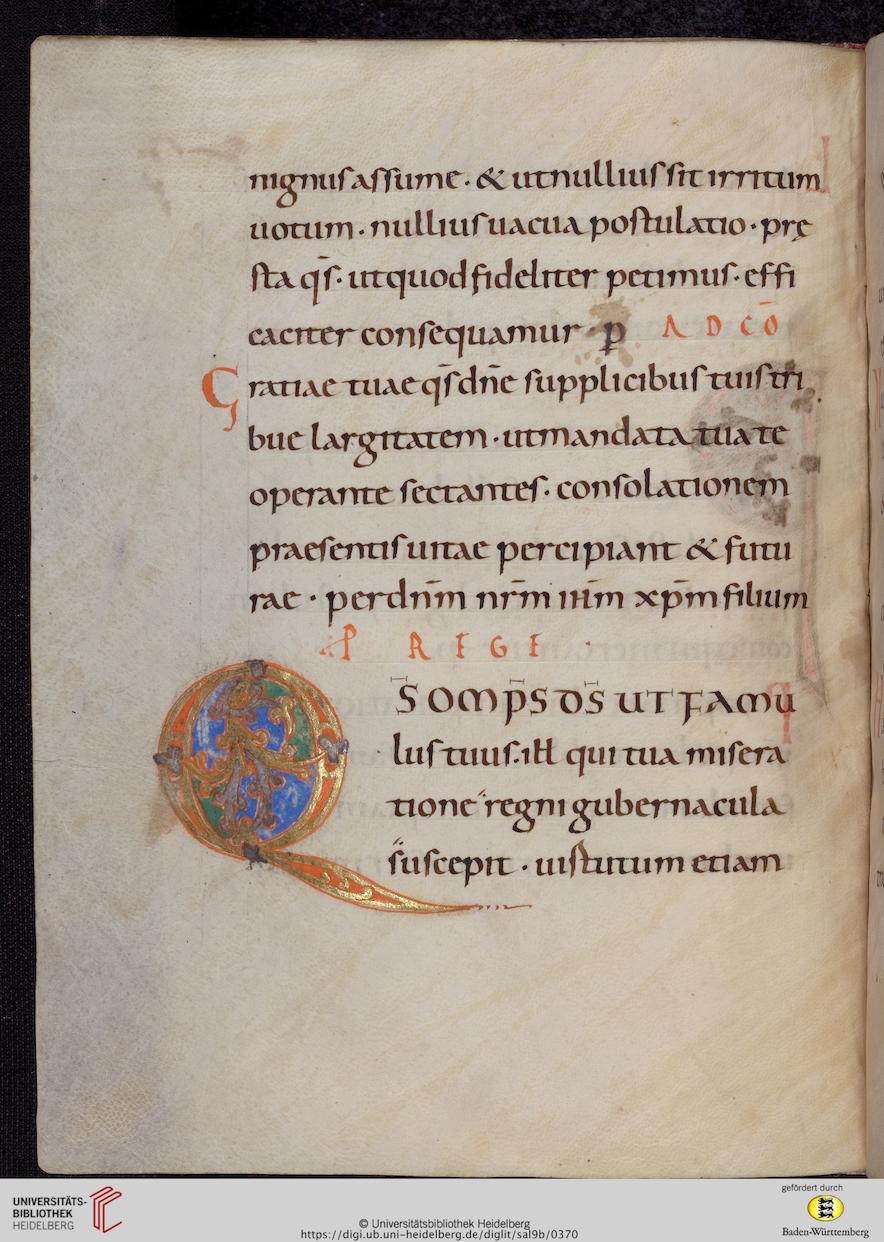 nignus assume · & ut nullius sit irritum
uotum · nullius uacua postulatio · prę
sta q̄s · ut quod fideliter petimus · effi
caciter consequamur · p̄ AD CŌ
Gratiae tuae q̄s dn̄e supplicibus tuis tri
bue largitatem · ut mandata tua te
operante sectantes · consolationem
praesentis uitae percipiant & futu
rae · per dn̄m nr̄m ih̄m xp̄m filium
REGE ·
Q̄S OMP̄S DS̄ UT FAMU
lus tuus · ill qui tua misera
tione regni gubernacula
suscepit · uistutum etiam
UNIVERSITÄTS-
BIBLIOTHEK
HEIDELBERG
© Universitätsbibliothek Heidelberg
https://digi.ub.uni-heidelberg.de/diglit/sal9b/0370
gefördert durch
Baden-Württemberg